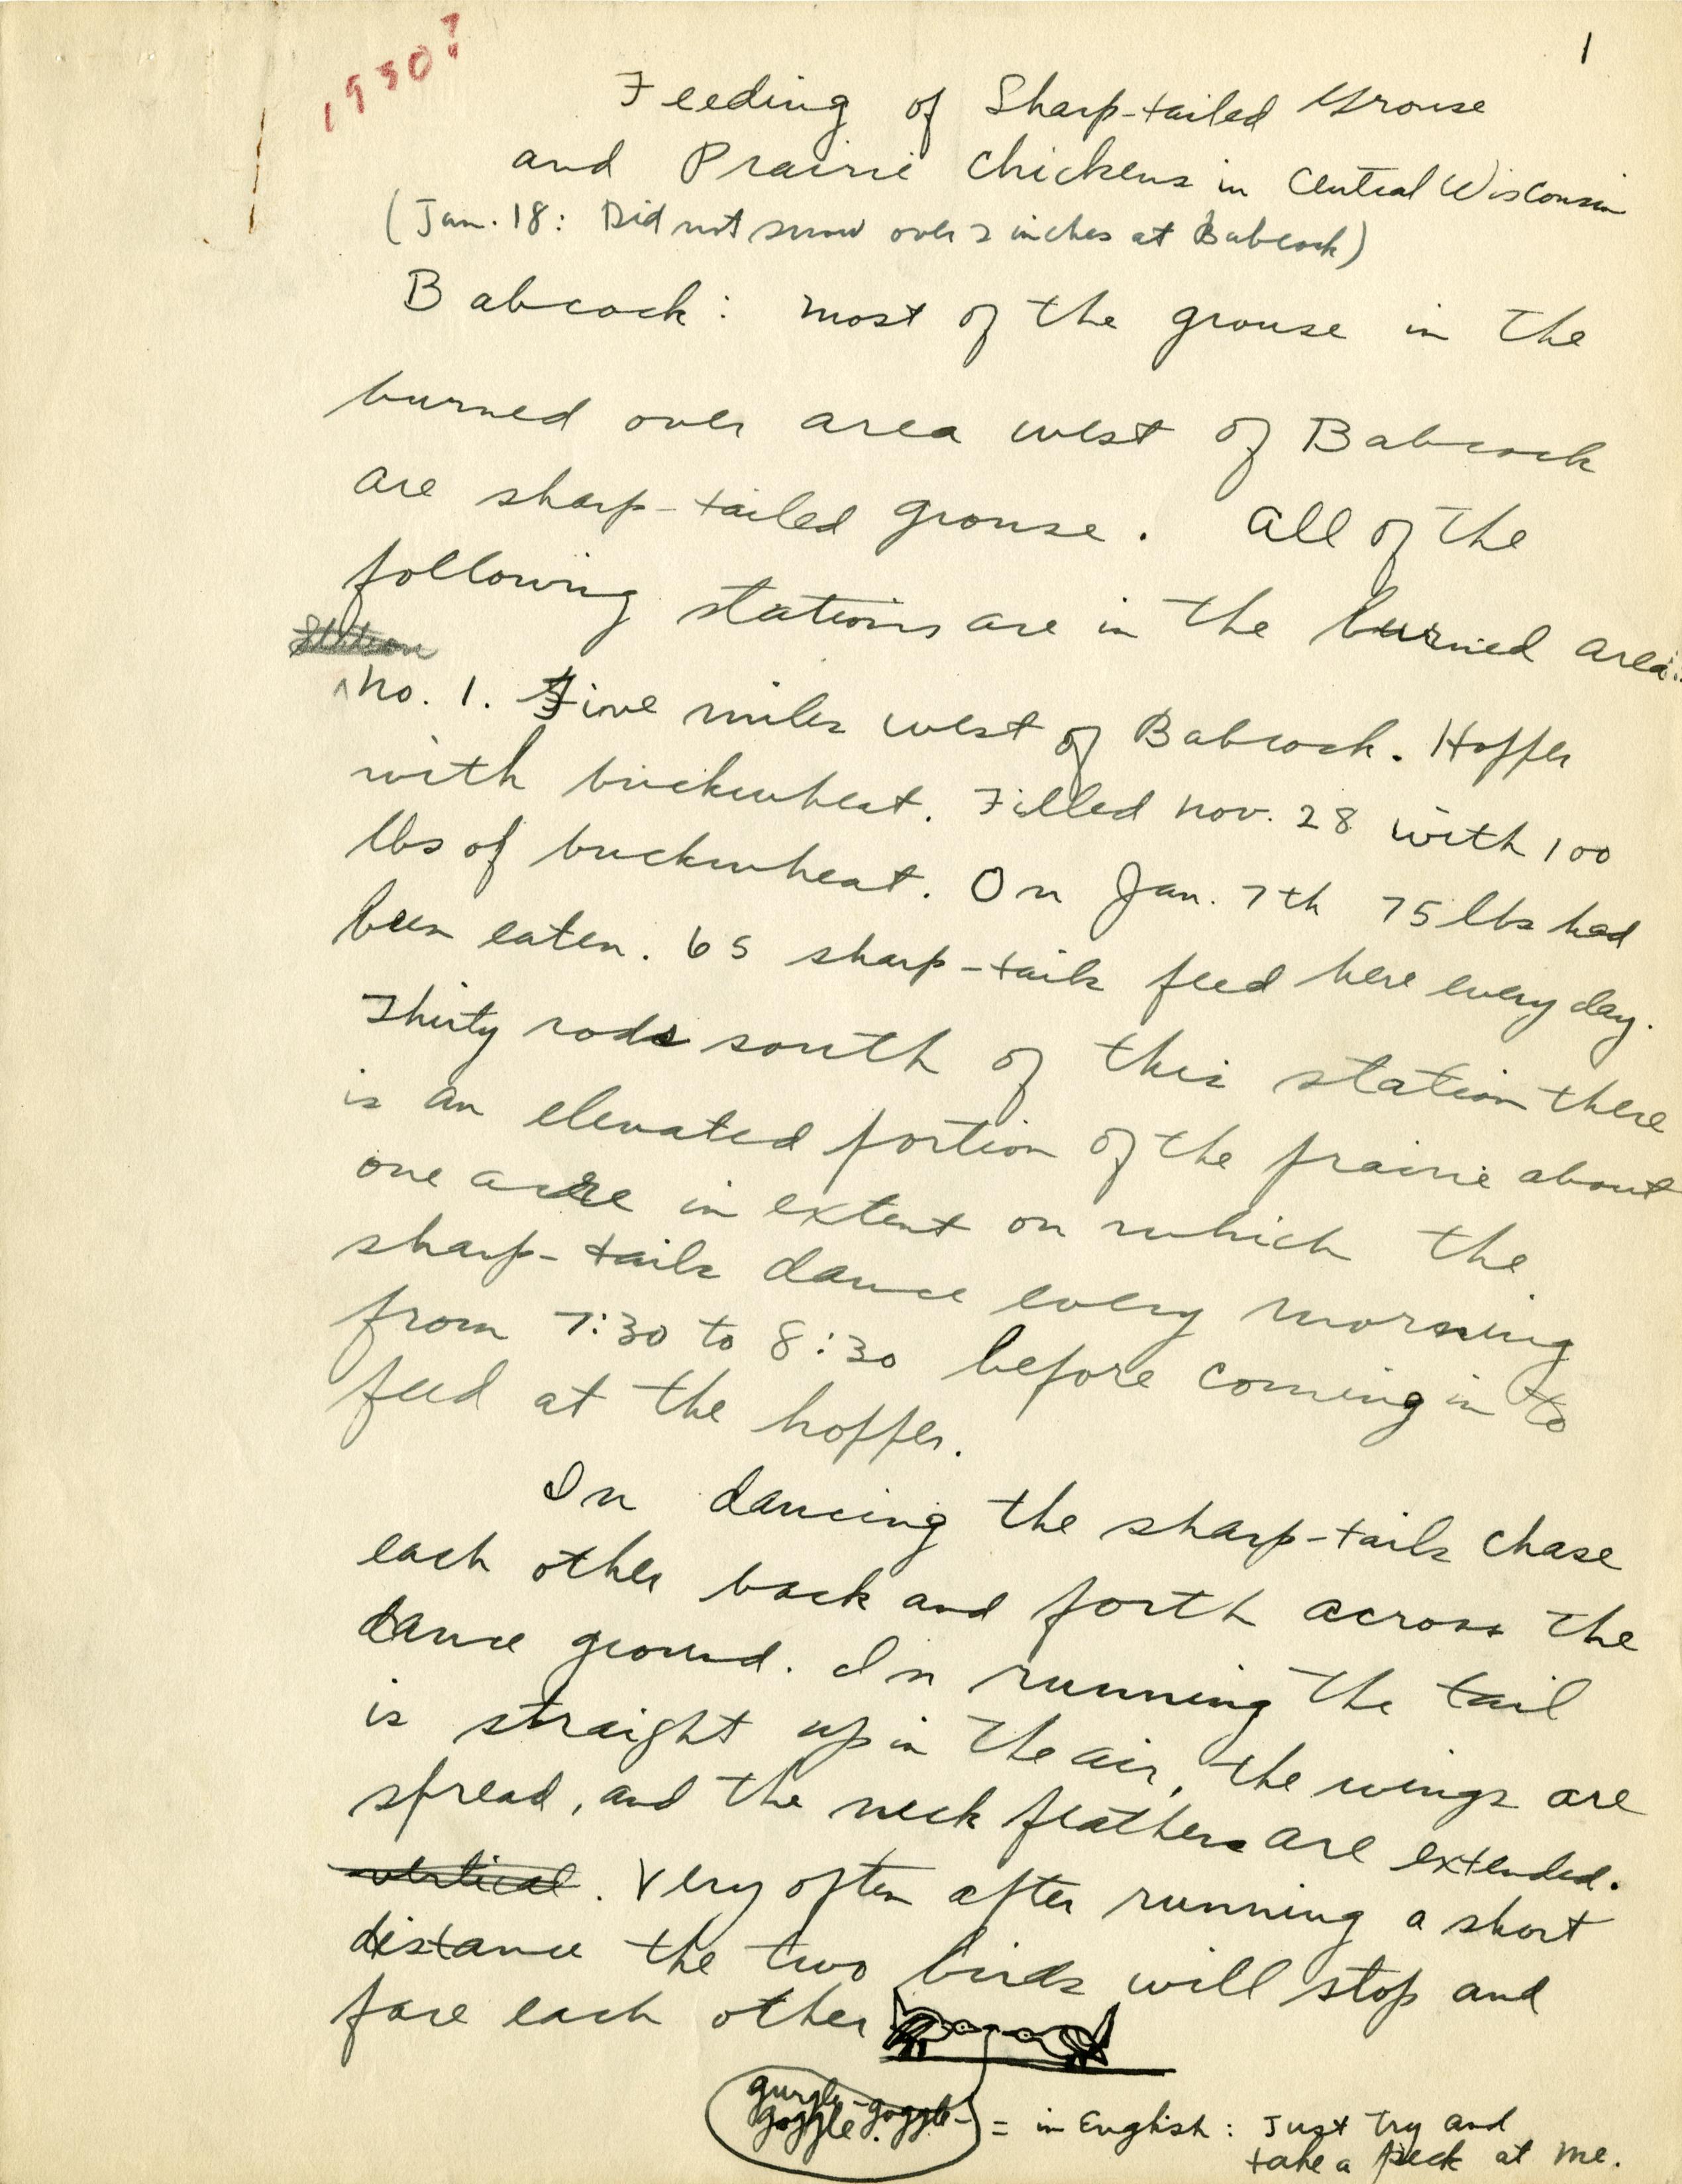 1
1930?
Feeding of Sharp-tailed Grouse
and Prairie Chickens in Central Wisconsin
(Jan. 18: Did not snow over 2 inches at Babcock)
Babcock: Most of the grouse in the
burned over area west of Babcock
are sharp-tailed grouse. All of the
following stations are in the burned area:
Station
^No. 1. Five miles west of Babcock. Hopper
with buckwheat. Filled Nov. 28 with 100
lbs of buckwheat. On Jan. 7th 75 lbs had
been eaten. 65 sharp-tails feed here every day.
Thirty rods south of this station there
is an elevated portion of the prairie about
one acre in extent on which the
sharp-tails dance every morning
from 7:30 to 8:30 before coming in to
feed at the hopper.
In dancing the sharp-tails chase
each other back and forth across the
dance ground. In running the tail
is straight up in the air, the wings are
spread, and the neck feathers are extended.
vertical. Very often after running a short
distance the two birds will stop and
face each other
gurgle-goggle-
goggle. = in English: Just try and
take a peck at me.